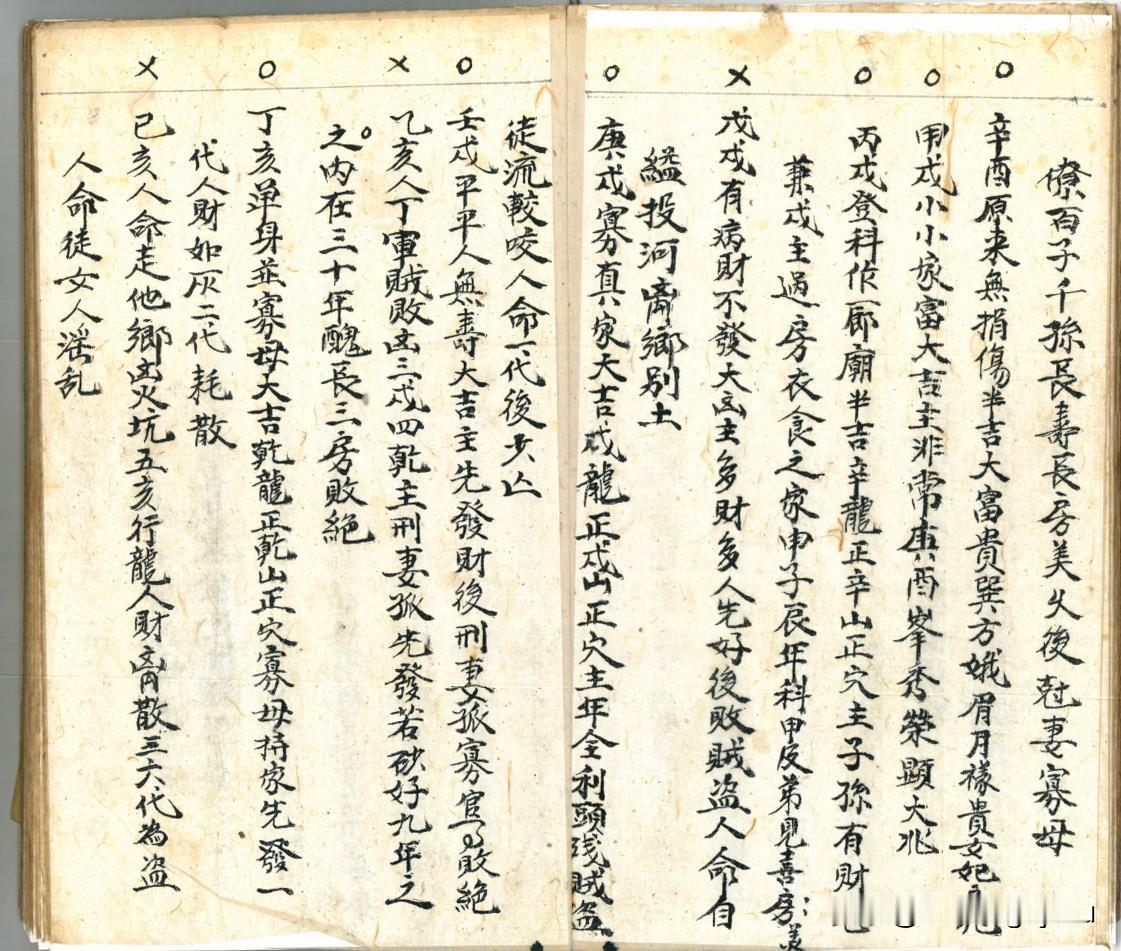 僚百子千孫長壽長房美久後尅妻寡母
○辛酉原来無損傷半吉大富貴巽方娥眉月樣貴女妃
○甲戌小小家富大吉主非常庚酉峯秀榮顯大兆
○丙戌登科作廊廟半吉辛龍正辛山正穴主子孫有財
兼戌主過房衣食之家申子辰年科甲及弟見喜房美
×戊戌有病財不發大凶主多財多人先好後敗賊盗人命自
縊投河离鄉别土
○庚戌寡真家大吉戌龍正戌山正穴主年全利頭残賊盗
徒流較咬人命一代後少亡
○壬戌平平人無壽大吉主先發財後刑妻孤寡官敗絕
×乙亥人丁軍賊敗凶三戌四乾主刑妻孤先發若砂好九年之
之内在三十年醜長三房敗絕
○丁亥單身並寡母大吉乾龍正乾山正穴寡母持家先發一
代人財如灰二代耗散
×己亥人命走他鄉凶火坑五亥行龍人財离散三六代為盗
人命徒女人淫乱